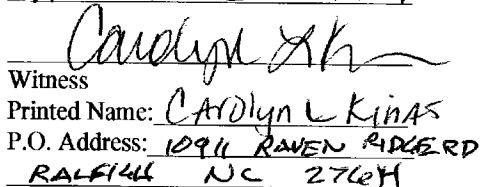 Carolyn L K
Witness
Printed Name: CArolyn L KinAS
P.O. Address: 10911 RAVEN RIDGE RD
RALEIGH NC 27614